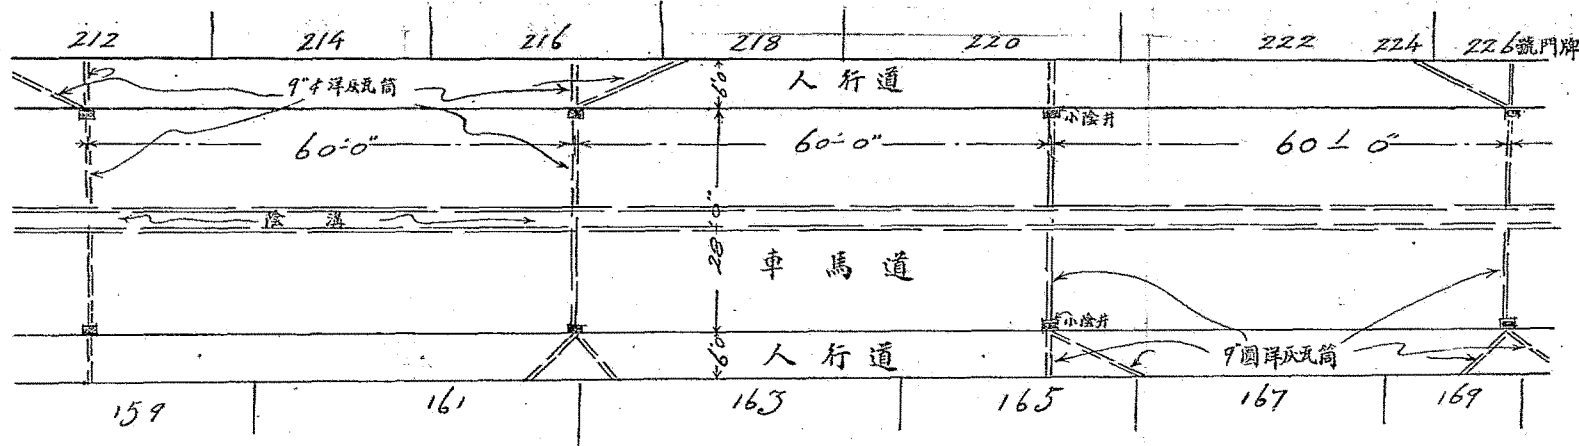 212 214 216 218 220 222 224 226號門牌
9"φ洋灰瓦筒
6'0"
人行道
小陰井
60'-0" 60'-0" 60'-0"
陰溝
28'-0"
車馬道
小陰井
6'0"
人行道
9"圓洋灰瓦筒
159 161 163 165 167 169